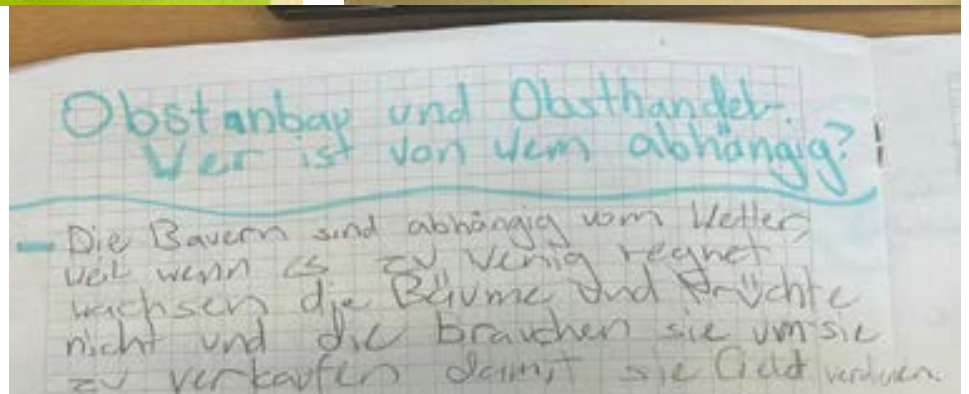 Obstanbau und Obsthandel-
Wer ist von wem abhängig?
Die Bauern sind abhängig vom Wetter,
weil wenn es zu wenig regnet
wachsen die Bäume und Früchte
nicht und die brauchen sie um sie
zu verkaufen damit sie Geld verdienen.